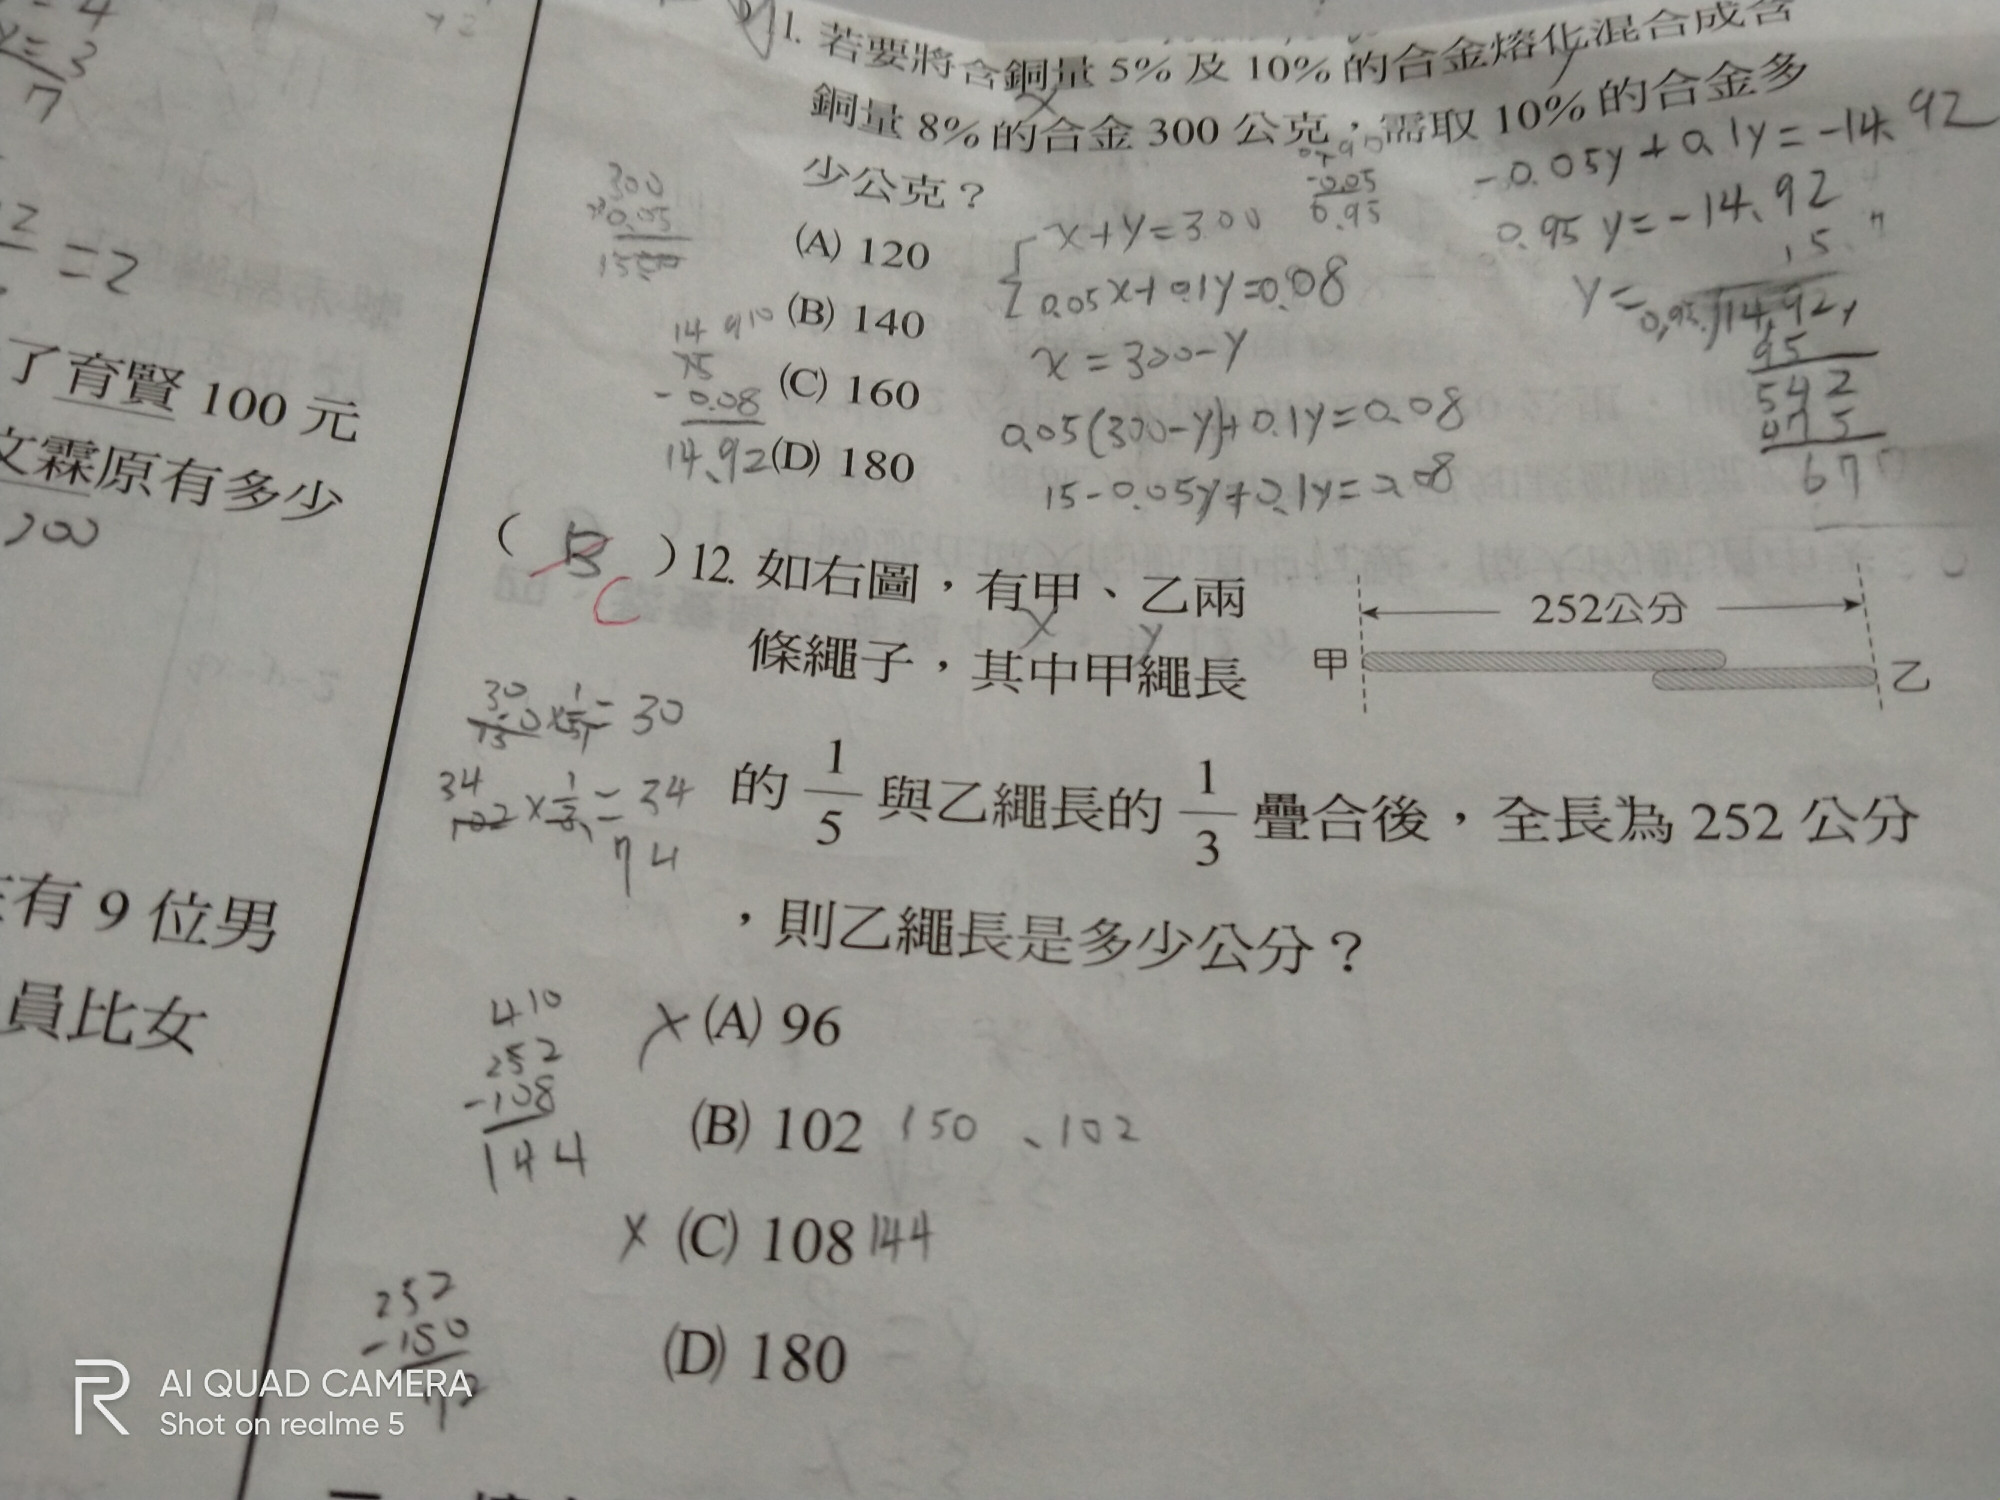 4
y=3
7
2
=2
了育賢 100 元
文霖原有多少
100
有 9 位男
員比女
1. 若要將含銅量 5% 及 10% 的合金熔化混合成含
x
y
銅量 8% 的合金 300 公克，需取 10% 的合金多
少公克？
300
×0.05
(A) 120
(B) 140
(C) 160
(D) 180
14 9 10
15
-0.08
14.92
x+y=300
0.05x+0.1y=0.08
x=300-y
0.05(300-y)+0.1y=0.08
15-0.05y+0.1y=0.08
-0.05
0.95
-0.05y+0.1y=-14.92
0.95y=-14.92
15
y=0.95 14.92
95
542
475
67
( B )12. 如右圖，有甲、乙兩
C
x y
條繩子，其中甲繩長
252公分
甲
乙
的 1/5 與乙繩長的 1/3 疊合後，全長為 252 公分
，則乙繩長是多少公分？
30
150×1/5=30
34
102×1/3=34
74
x (A) 96
(B) 102 150 、102
x (C) 108 144
(D) 180
4 10
252
-108
144
252
-150
AI QUAD CAMERA
Shot on realme 5